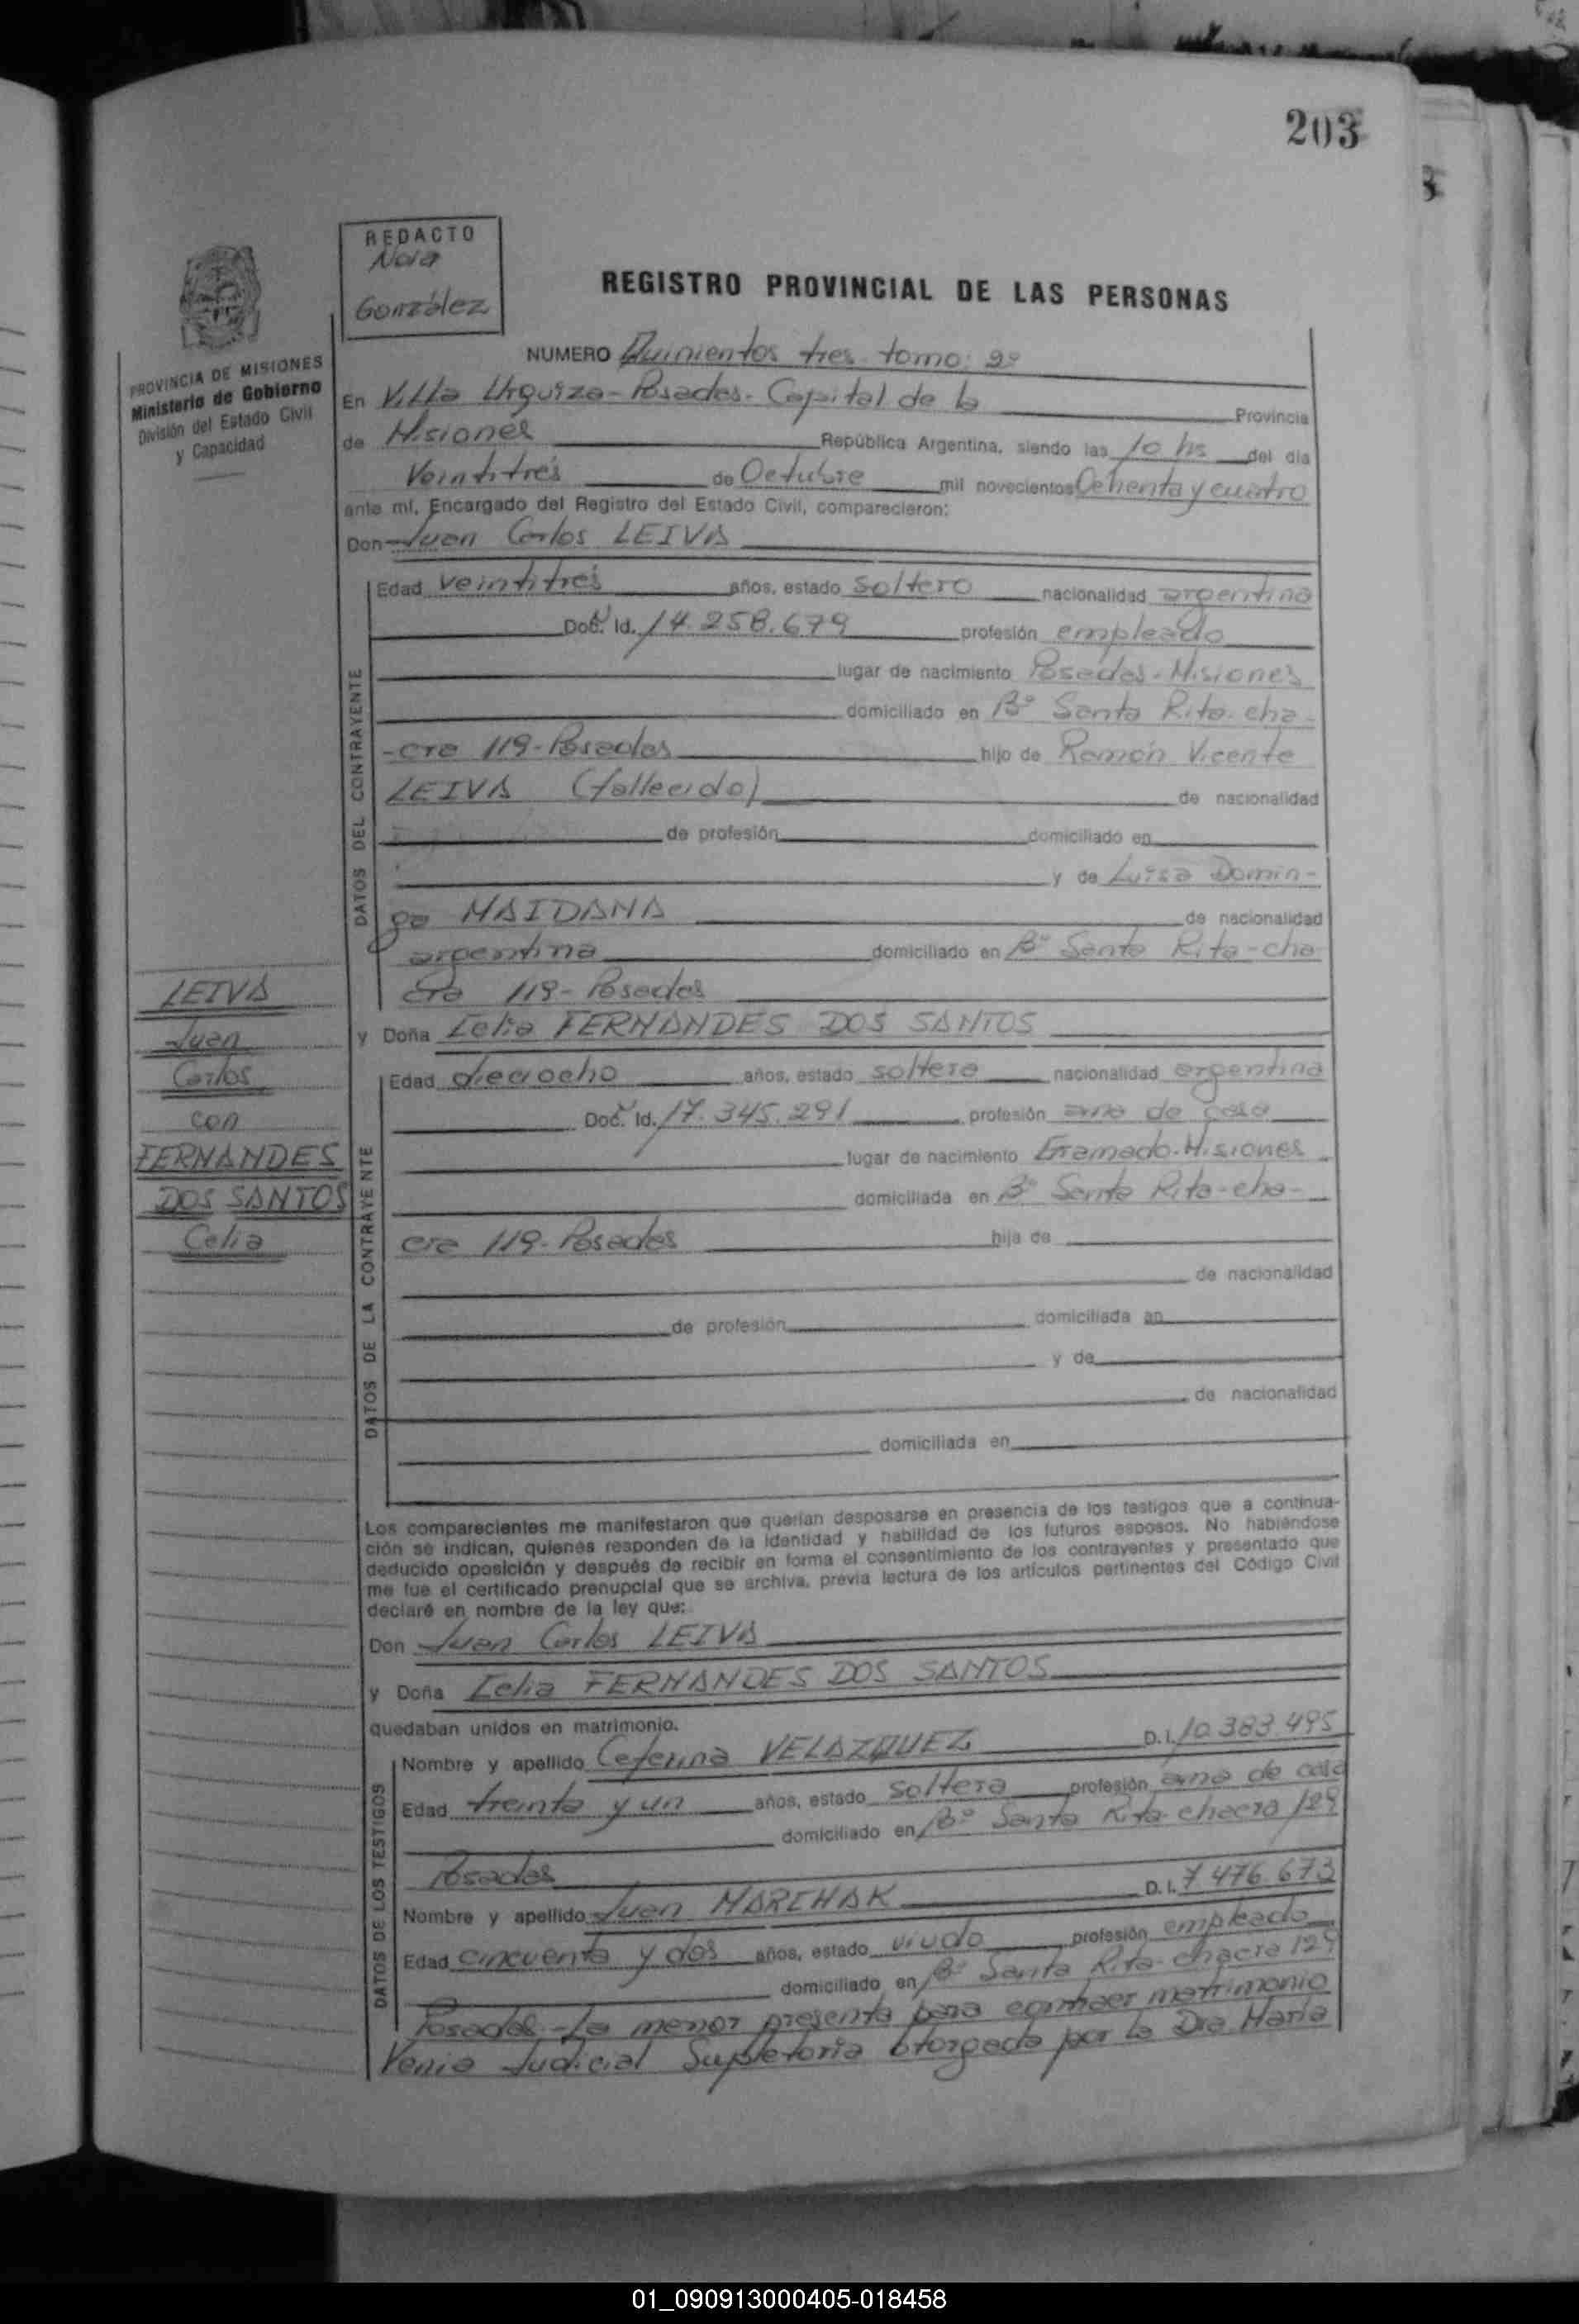 203
REDACTO
González
REGISTRO PROVINCIAL DE LAS PERSONAS
PROVINCIA DE MISIONES
Ministerio de Gobierno
División del Estado Civil
y Capacidad
NUMERO Quinientos tres tomo: 2º
En Villa Urquiza-Posadas-Capital de la Provincia
de Misiones República Argentina, siendo las 10 hs del día
Veintitrés de Octubre mil novecientos Ochenta y cuatro
ante mí, Encargado del Registro del Estado Civil, comparecieron:
Don Juan Carlos LEIVA
DATOS DEL CONTRAYENTE
Edad veintitres años, estado soltero nacionalidad argentina
Doc. Id. 14.258.679 profesión empleado
lugar de nacimiento Posadas-Misiones
domiciliado en Bº Santa Rita-cha-
-cra 119-Posadas hijo de Ramón Vicente
LEIVA (fallecido) de nacionalidad
de profesión domiciliado en
y de Luisa Domin-
ga MAIDANA de nacionalidad
argentina domiciliado en Bº Santa Rita-cha
cra 119-Posadas
y Doña Celia FERNANDES DOS SANTOS
DATOS DE LA CONTRAYENTE
Edad dieciocho años, estado soltera nacionalidad argentina
Doc. Id. 17.345.291 profesión ama de casa
lugar de nacimiento Gramado-Misiones
domiciliada en Bº Santa Rita-cha-
cra 119-Posadas hija de
de nacionalidad
de profesión domiciliada en
y de
de nacionalidad
domiciliada en
LEIVA
Juan
Carlos
con
FERNANDES
DOS SANTOS
Celia
Los comparecientes me manifestaron que querían desposarse en presencia de los testigos que a continua-
ción se indican, quienes responden de la identidad y habilidad de los futuros esposos. No habiéndose
deducido oposición y después de recibir en forma el consentimiento de los contrayentes y presentado que
me fue el certificado prenupcial que se archiva, previa lectura de los artículos pertinentes del Código Civil
declaré en nombre de la ley que:
Don Juan Carlos LEIVA
y Doña Celia FERNANDES DOS SANTOS
quedaban unidos en matrimonio.
DATOS DE LOS TESTIGOS
Nombre y apellido Ceferina VELAZQUEZ D.I. 10.383.495
Edad treinta y un años, estado soltera profesión ama de casa
domiciliado en Bº Santa Rita-chacra 129
Posadas
Nombre y apellido Juan MARCHAK D.I. 7.476.673
Edad cincuenta y dos años, estado viudo profesión empleado
domiciliado en Bº Santa Rita-chacra 129
Posadas-La menor presenta para contraer matrimonio
Venia Judicial Supletoria otorgada por la Dra. María
01_090913000405-018458